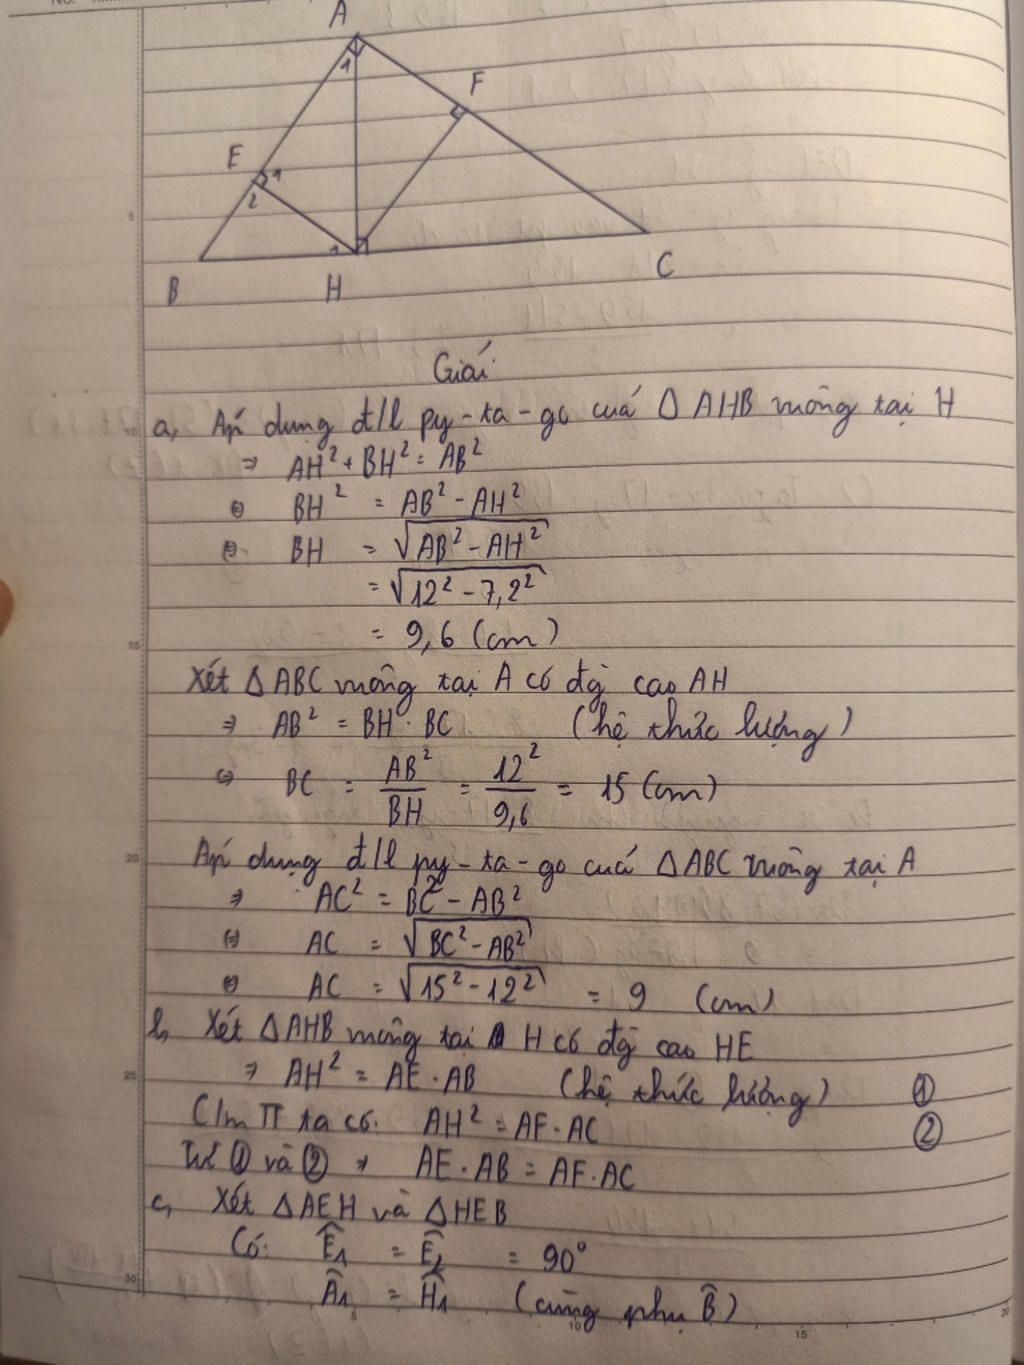 No.
A
1
F
E
1
2
1
B
H
C
Giải
a, Áp dụng đ/l py-ta-go cuả Δ AHB vuông tại H
⇒ AH² + BH² = AB²
⇔ BH² = AB² - AH²
⇔ BH = √AB² - AH²
= √12² - 7,2²
= 9,6 (cm)
Xét Δ ABC vuông tại A có đg cao AH
⇒ AB² = BH · BC (hệ thức lượng)
⇔ BC = AB²/BH = 12²/9,6 = 15 (cm)
Áp dụng đ/l py-ta-go cuả Δ ABC vuông tại A
⇒ AC² = BC² - AB²
⇔ AC = √BC² - AB²
⇔ AC = √15² - 12² = 9 (cm)
b, Xét Δ AHB vuông tại H có đg cao HE
⇒ AH² = AE · AB (hệ thức lượng) ①
C/m TT ta có: AH² = AF · AC ②
Từ ① và ② ⇒ AE · AB = AF · AC
c, Xét Δ AEH và Δ HEB
Có: Ê₁ = Ê₂ = 90°
Â₁ = Ĥ₁ (cùng phụ B̂)
5
10
15
20
25
30
5
10
15
20